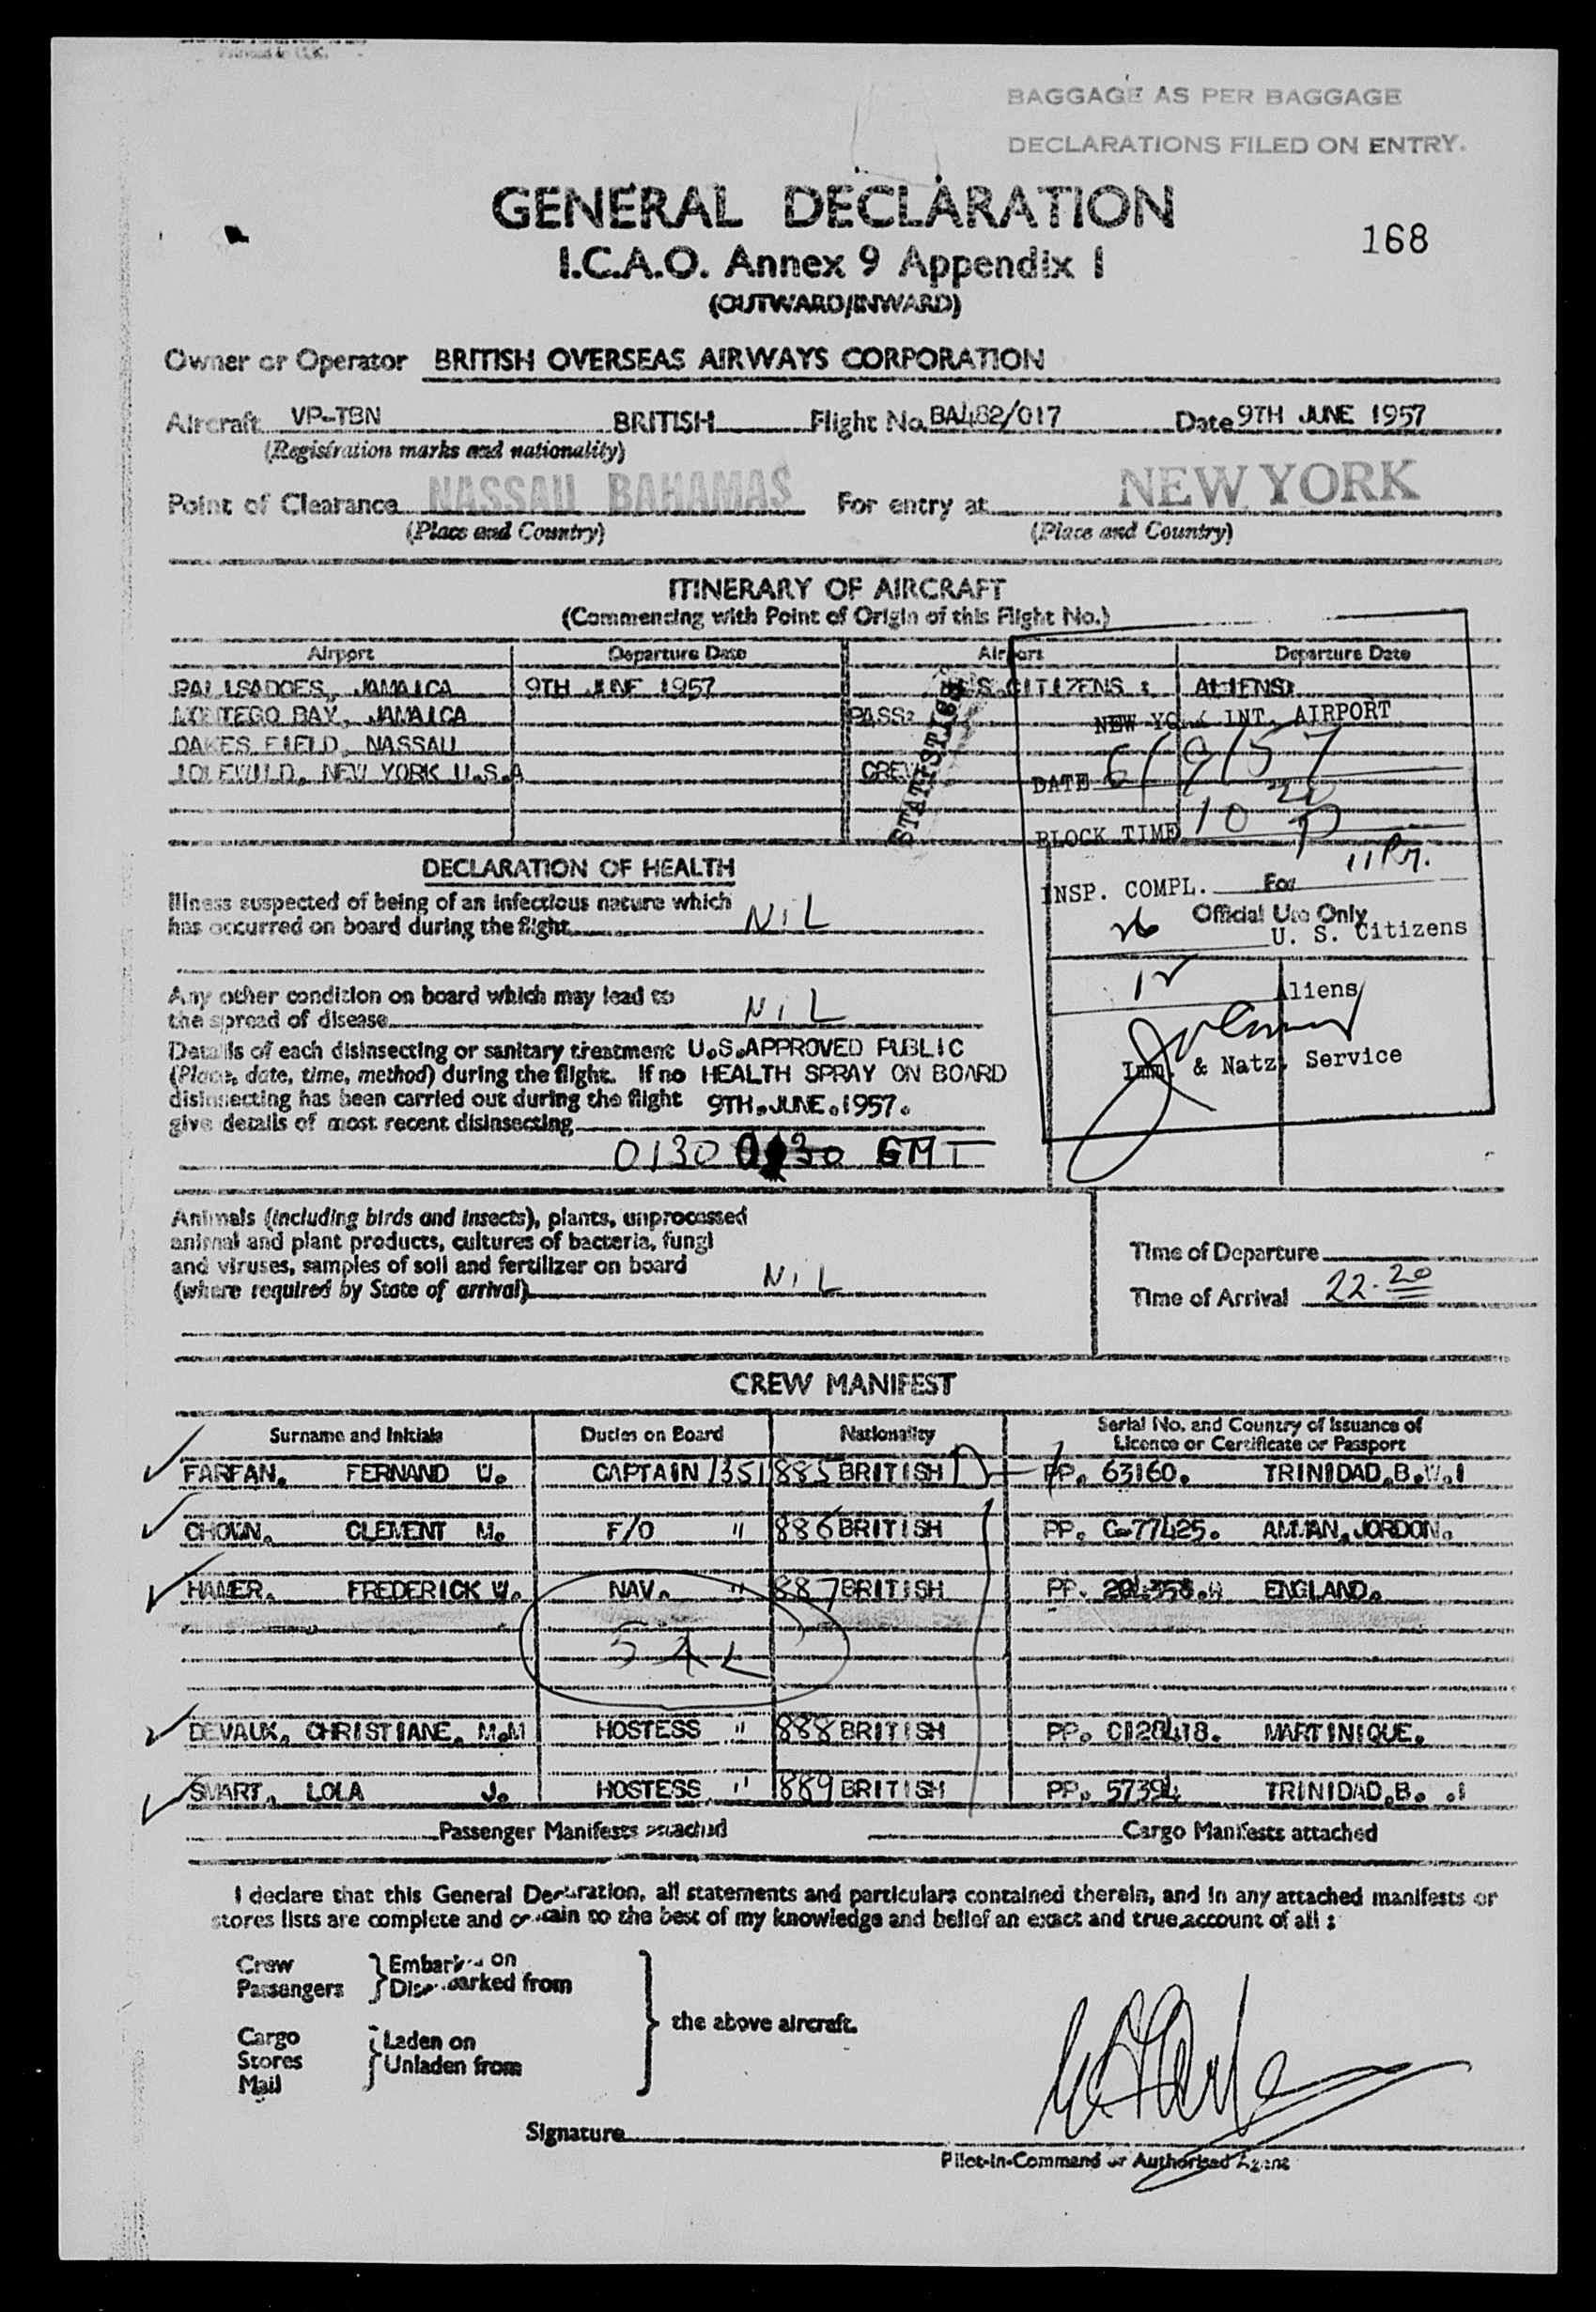 BAGGAGE AS PER BAGGAGE
DECLARATIONS FILED ON ENTRY.
GENERAL DECLARATION
168
I.C.A.O. Annex 9 Appendix I
(OUTWARD/INWARD)
Owner or Operator BRITISH OVERSEAS AIRWAYS CORPORATION
Aircraft VP-TBN BRITISH Flight No. BA482/017 Date 9TH JUNE 1957
(Registration marks and nationality)
Point of Clearance NASSAU BAHAMAS For entry at NEW YORK
(Place and Country) (Place and Country)
ITINERARY OF AIRCRAFT
(Commencing with Point of Origin of this Flight No.)
Airport Departure Date Airport Departure Date
PALISADOES, JAMAICA 9TH JUNE 1957 U.S.CITIZENS : ALIENS:
MONTEGO BAY, JAMAICA PASS: NEW YORK INT. AIRPORT
OAKES FIELD, NASSAU
IDLEWILD, NEW YORK U.S.A CREW
STATISTICS
DATE 6/9/57
BLOCK TIME 10 20 P
DECLARATION OF HEALTH
INSP. COMPL. 11 Pm.
For
Official Use Only
Illness suspected of being of an infectious nature which
has occurred on board during the flight NIL
26 U. S. Citizens
Any other condition on board which may lead to
the spread of disease NIL
12 Aliens
Imm. & Natz. Service
Details of each disinsecting or sanitary treatment U.S.APPROVED PUBLIC
(Place, date, time, method) during the flight. If no HEALTH SPRAY ON BOARD
disinsecting has been carried out during the flight 9TH.JUNE.1957.
give details of most recent disinsecting
0130 0130 GMT
Animals (including birds and insects), plants, unprocessed
animal and plant products, cultures of bacteria, fungi
and viruses, samples of soil and fertilizer on board
(where required by State of arrival) NIL
Time of Departure
Time of Arrival 22.20
CREW MANIFEST
Surname and Initials Duties on Board Nationality Serial No. and Country of Issuance of
Licence or Certificate or Passport
FARFAN. FERNAND W. CAPTAIN 1351 885 BRITISH PP. 63160. TRINIDAD.B.W.I
CHOWN. CLEMENT M. F/O " 886 BRITISH PP. C-77425. AMMAN.JORDON.
HAMER. FREDERICK W. NAV. " 887 BRITISH PP. ENGLAND.
DEVAUX. CHRISTIANE. M.M HOSTESS " 888 BRITISH PP. C120418. MARTINIQUE.
SMART. LOLA J. HOSTESS " 889 BRITISH PP. 57394 TRINIDAD.B. .I
Passenger Manifests attached Cargo Manifests attached
I declare that this General Declaration, all statements and particulars contained therein, and in any attached manifests or
stores lists are complete and contain to the best of my knowledge and belief an exact and true account of all :
Crew Embarked on
Passengers Disembarked from
the above aircraft.
Cargo Laden on
Stores Unladen from
Mail
Signature
Pilot-in-Command or Authorised Agent